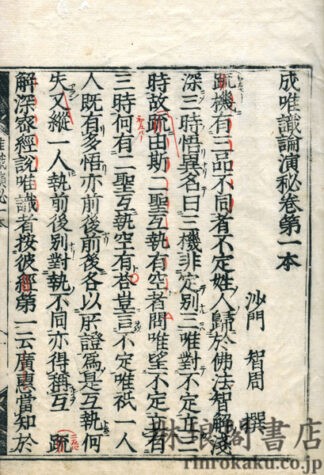 成唯識論演秘卷第一本
沙門 智周 撰
疏機有三品不同者不定姓人歸於佛法智解淺
深三時悟異名曰三機非定別三唯對不定立三
時故疏由斯二聖互執有空者問唯望不定立有
三時何有二聖互執空有答豈言不定唯祇一人
人既有多悟亦前後前後各以所證為是互執何
失又縱一人執前後別對執不同亦得稱互 疏
解深密經說唯識者按彼經第一云廣惠當知於
琳琅閣書店
rinrokaku.co.jp